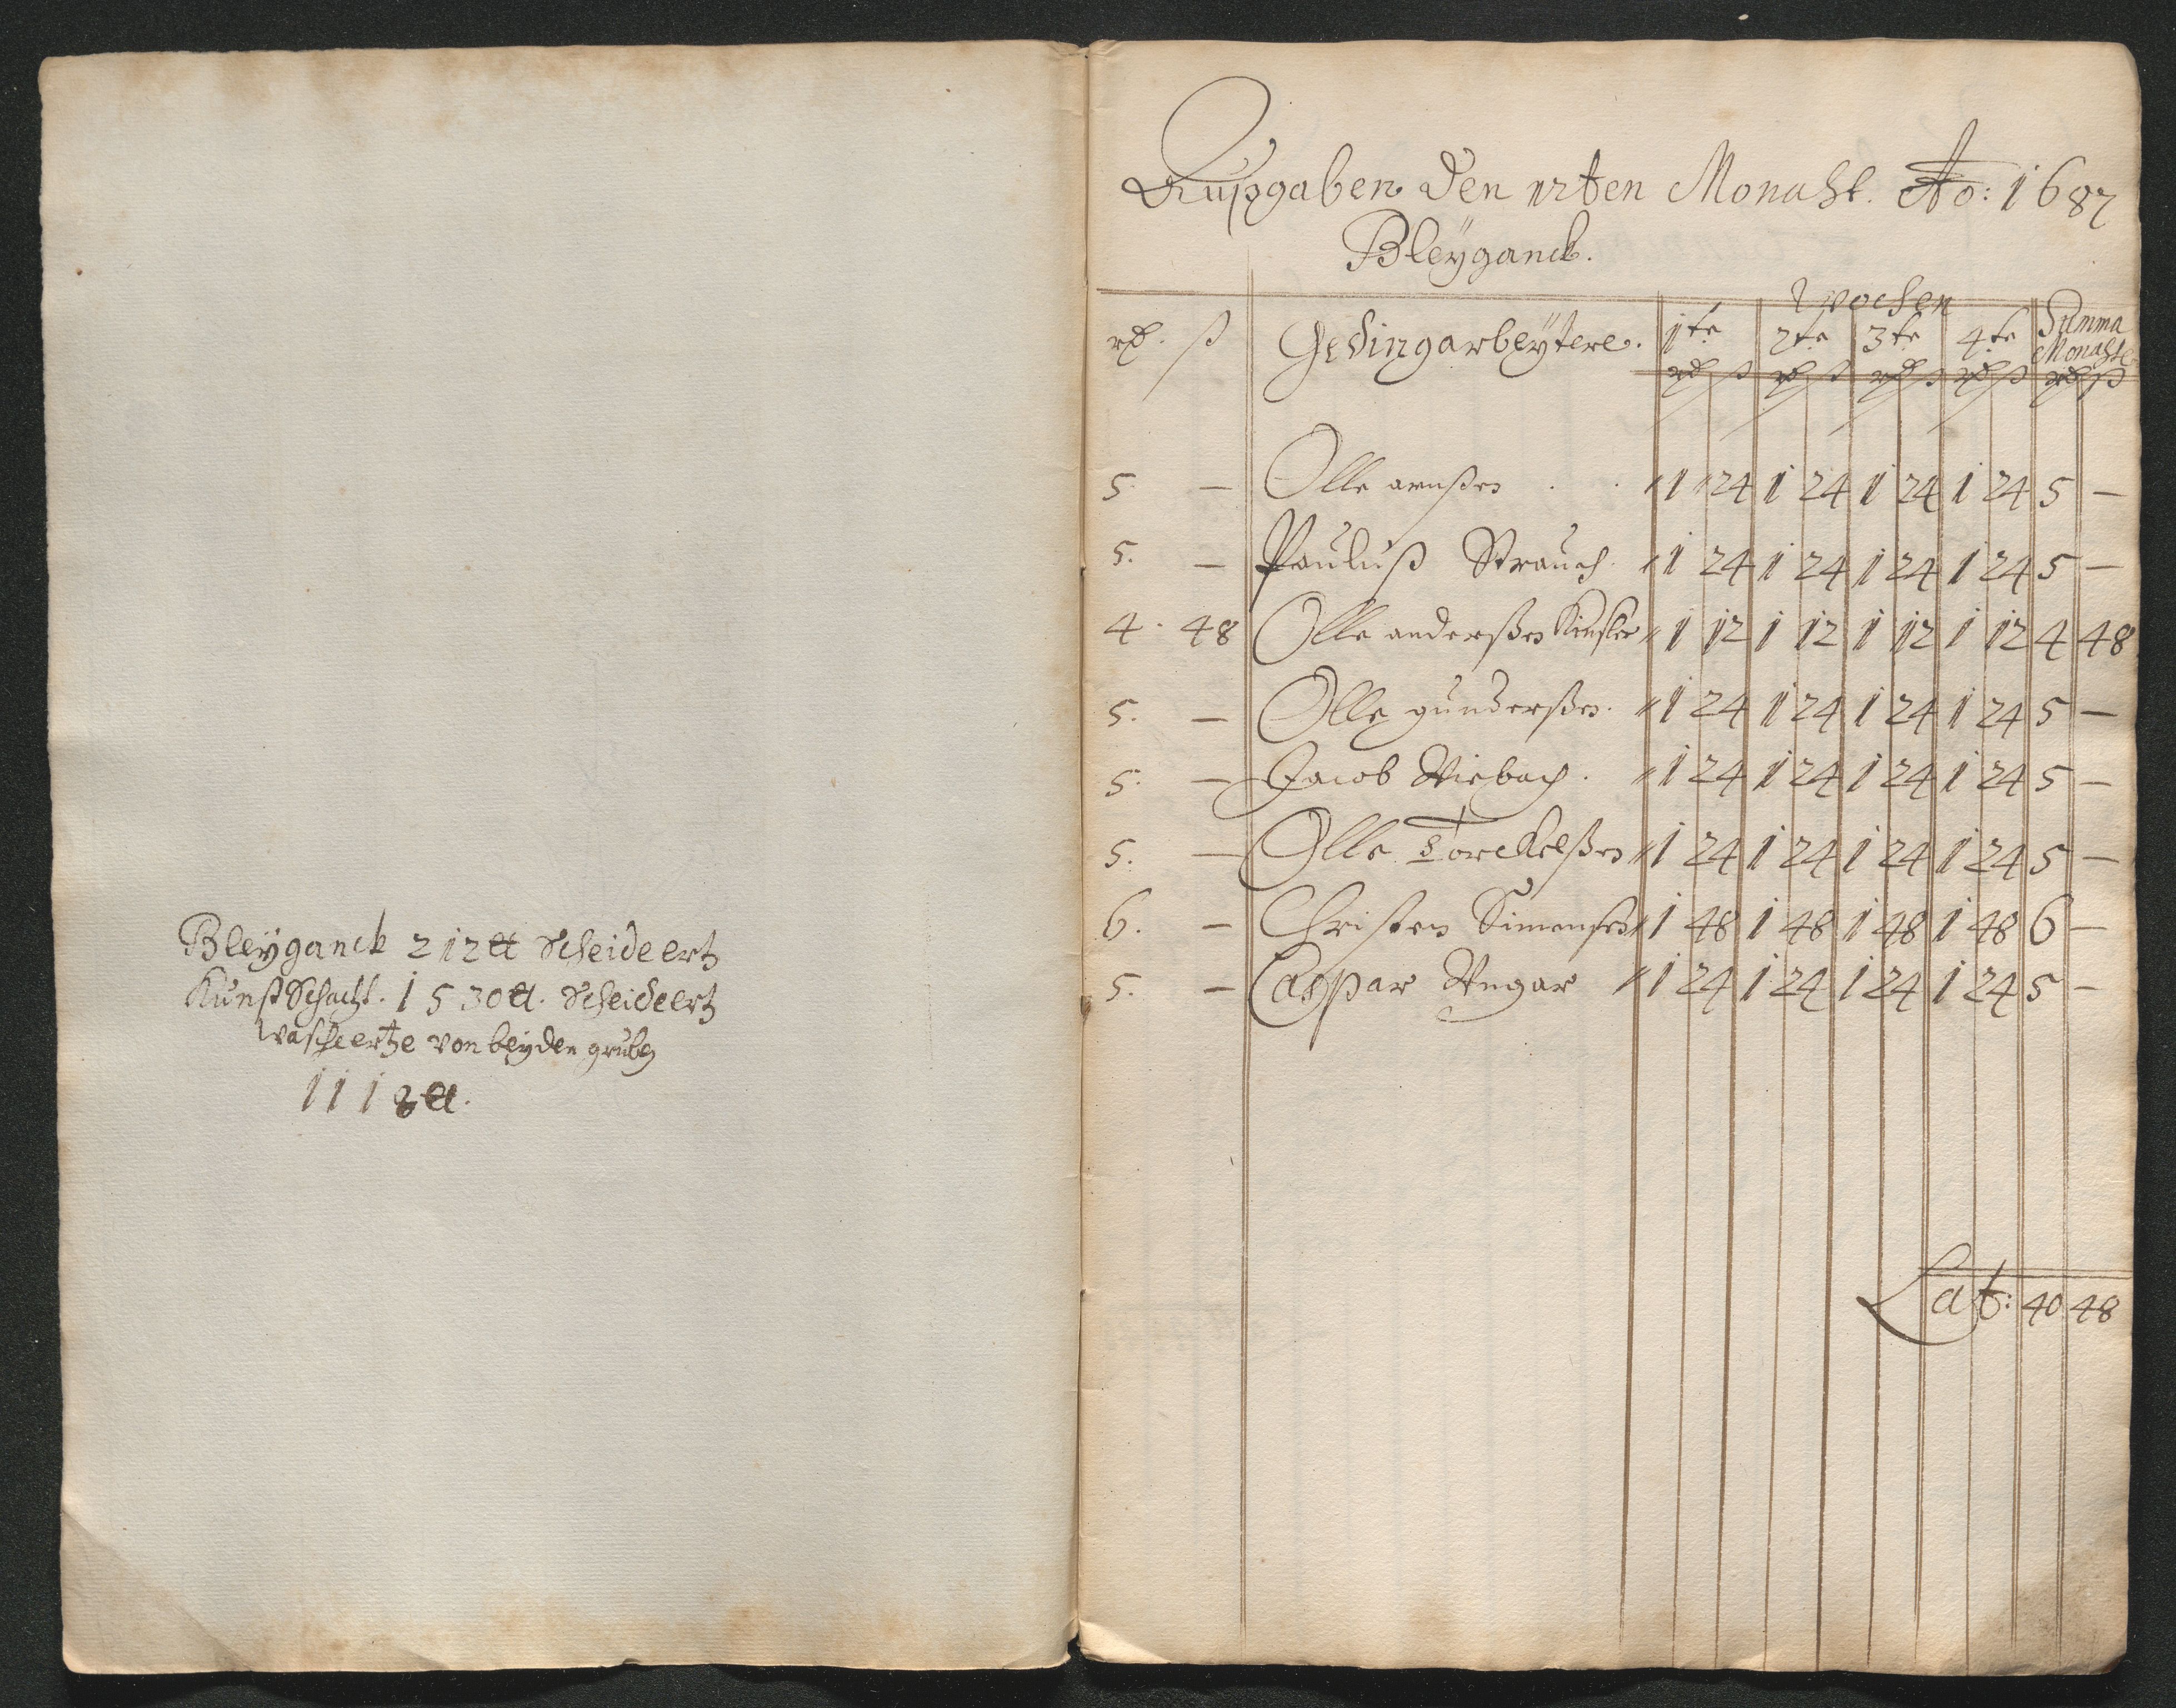 Bleÿganck 212 ℔ Scheide ertz
Kunst Schacht. 1530 ℔. Scheideertz
wascheertze von beyden grubg
1112 ℔.
Außgaben den 12ten Monaht. Ao: 1687
Bleÿganck.
Wochen
rd. ß Gedingarbeÿtere. 1te 2te 3te 4te Summa Monahte
rd ß rd ß rd ß rd ß rd ß
5. — Olle arnßen 1 24 1 24 1 24 1 24 5 —
5. — Pauluß Strauch. 1 24 1 24 1 24 1 24 5 —
4. 48 Olle anderßen 1 12 1 12 1 12 1 12 4 48
5. — Olle gunderßen. 1 24 1 24 1 24 1 24 5 —
5. — Jacob Viebach. 1 24 1 24 1 24 1 24 5 —
5. — Olle Torckelßen 1 24 1 24 1 24 1 24 5 —
6. — Christen Simensen 1 48 1 48 1 48 1 48 6 —
5. — Caspar Ungar 1 24 1 24 1 24 1 24 5 —
Lat: 40 48